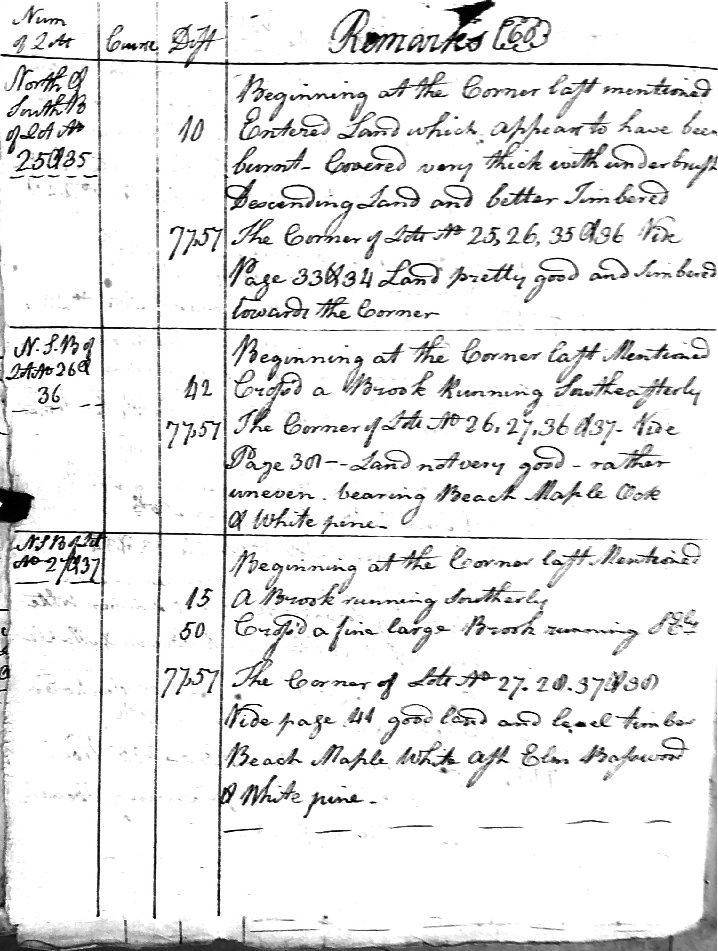 Num
of Lot Course Dist Remarks (60)
North &
South B
of Lot No
25 & 35
Beginning at the Corner last mentioned
10 Entered Land which appears to have been
burnt - Covered very thick with underbrush
Descending Land and better Timbered
77,57 The Corner of Lots No 25, 26, 35 & 36 Vide
Page 33 & 34 Land pretty good and Timbered
towards the Corner
N. S. B of
Lot No 26 &
36
Beginning at the Corner last Mentioned
42 Cross'd a Brook Running Southeasterly
77,57 The Corner of Lots No 26, 27, 36 & 37 - Vide
Page 38 -- Land not very good - rather
uneven. bearing Beach Maple Oak
& White pine -
N S B of Lot
No 27 & 37
Beginning at the Corner last Mentioned
15 A Brook running Southerly
50 Cross'd a fine large Brook running SEly
77,57 The Corner of Lots No 27. 28. 37 & 38
Vide page 41 good land and level timber
Beach Maple White Ash Elm Basswood
& White pine -